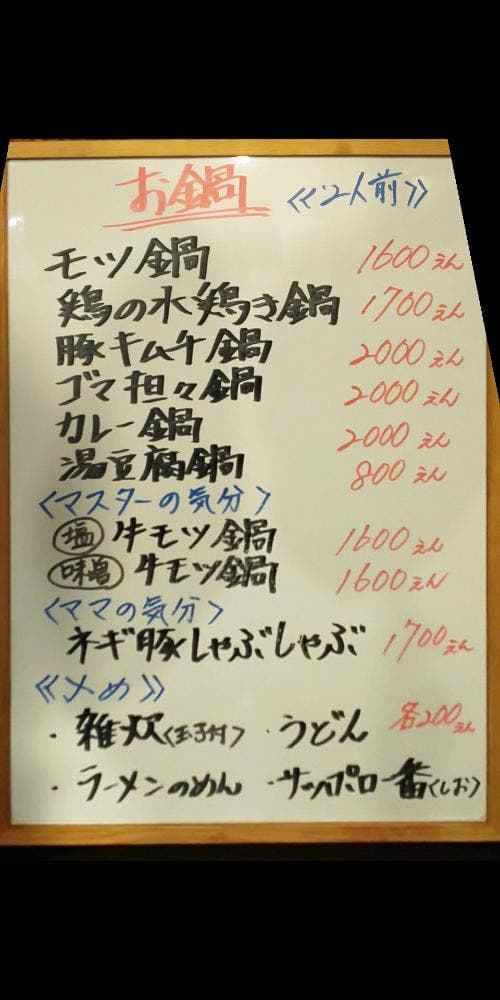 お鍋 《2人前》
モツ鍋 1600えん
鶏の水鶏き鍋 1700えん
豚キムチ鍋 2000えん
ゴマ担々鍋 2000えん
カレー鍋 2000えん
湯豆腐鍋 800えん
〈マスターの気分〉
塩 牛モツ鍋 1600えん
味噌 牛モツ鍋 1600えん
〈ママの気分〉
ネギ豚しゃぶしゃぶ 1700えん
《〆め》
・雑炊〈玉子付〉 ・うどん 各200えん
・ラーメンのめん ・サッポロ一番〈しお〉